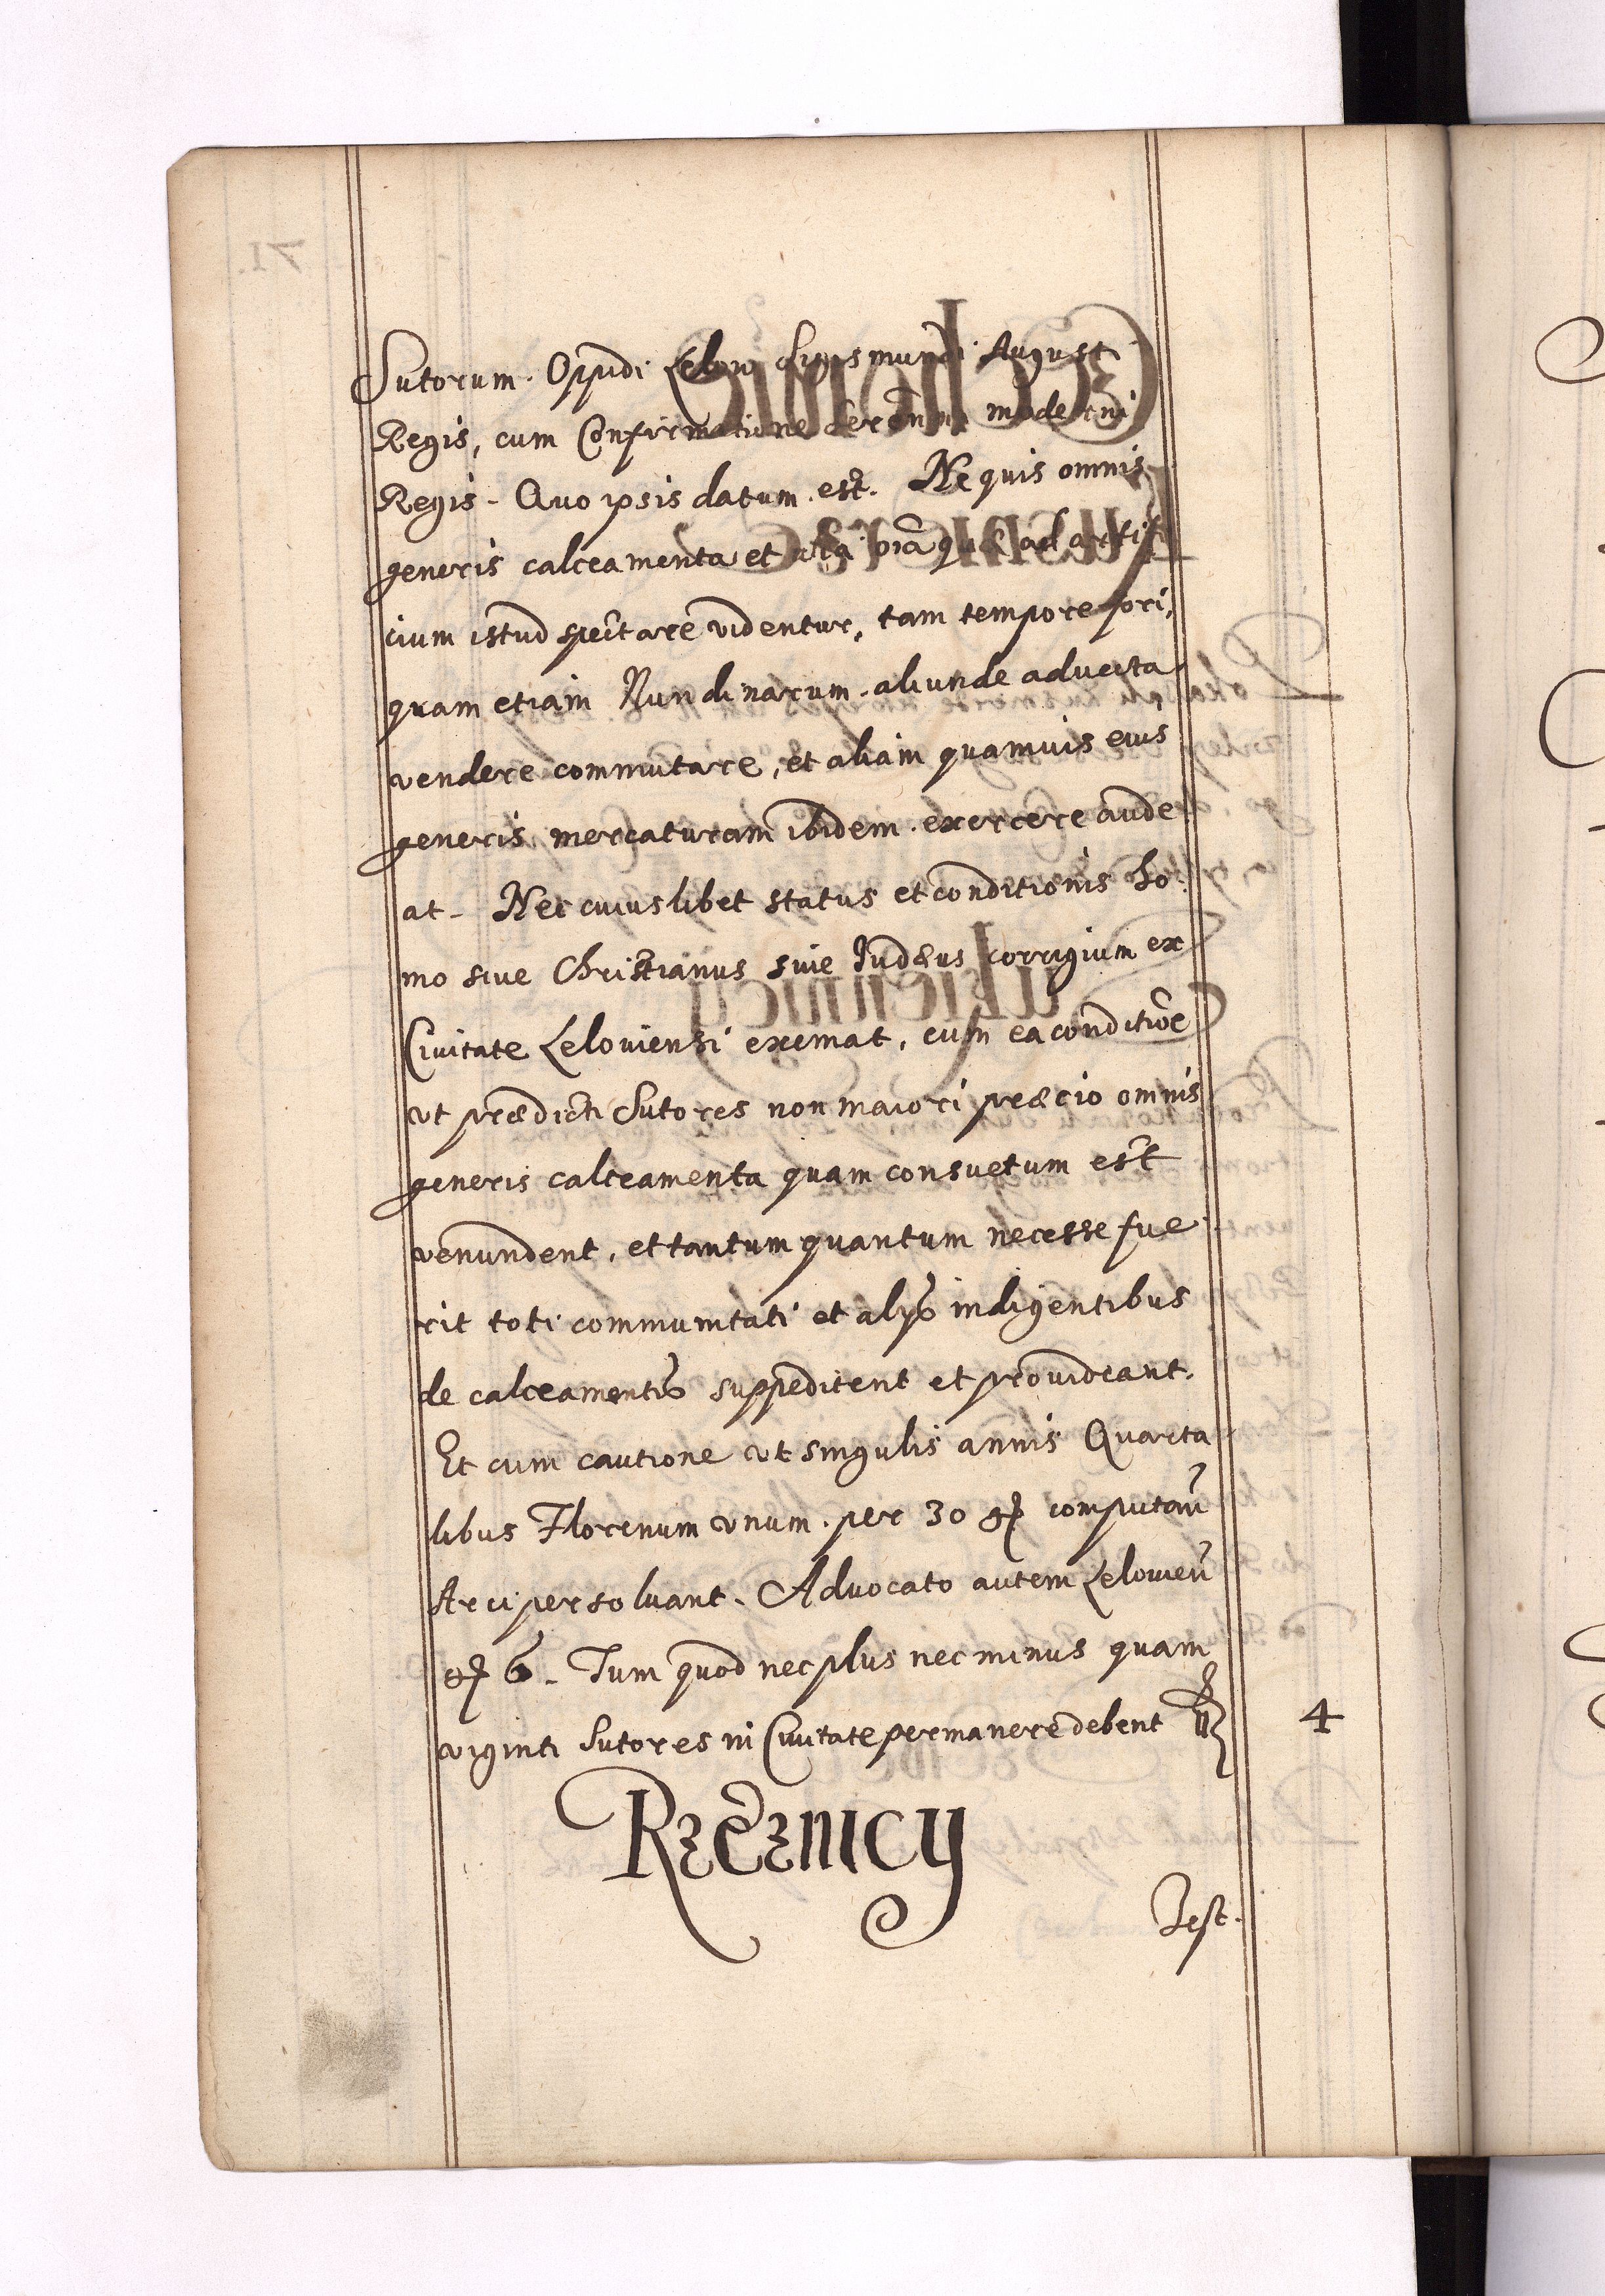 Sutorum. Oppidi Lelow Sigismundi August
Regis, cum Confirmatione Serenmi moderni
Regis - Quo ipsis datum est. Ne quis omnis
generis calceamenta et alia oia quae ad artifi
cium istud spectare videntur, tam tempore fori,
quam etiam Nundinarum aliunde aduecta
vendere commutare, et aliam quamuis eius
generis mercaturam ibidem exercere aude
at - Nec cuiuslibet status et conditionis ho
mo siue Christianus siue Iudæus corrigium ex
Ciuitate Lelouiensi eximat, cum ea conditioe
vt prædicti Sutores non maiori præcio omnis
generis calceamenta quam consuetum est
venundent, et tantum quantum necesse fue
rit toti communitati et alijs indigentibus
de calceamentis suppeditent et prouideant.
Et cum cautione vt singulis annis Quarta
libus Florenum vnum per 30 gr computan
Arci persoluant. Aduocato autem Lelouien
gr 6 - Tum quod nec plus nec minus quam
viginti Sutores in Ciuitate permanere debent 4
Rzeznicy
Jest.